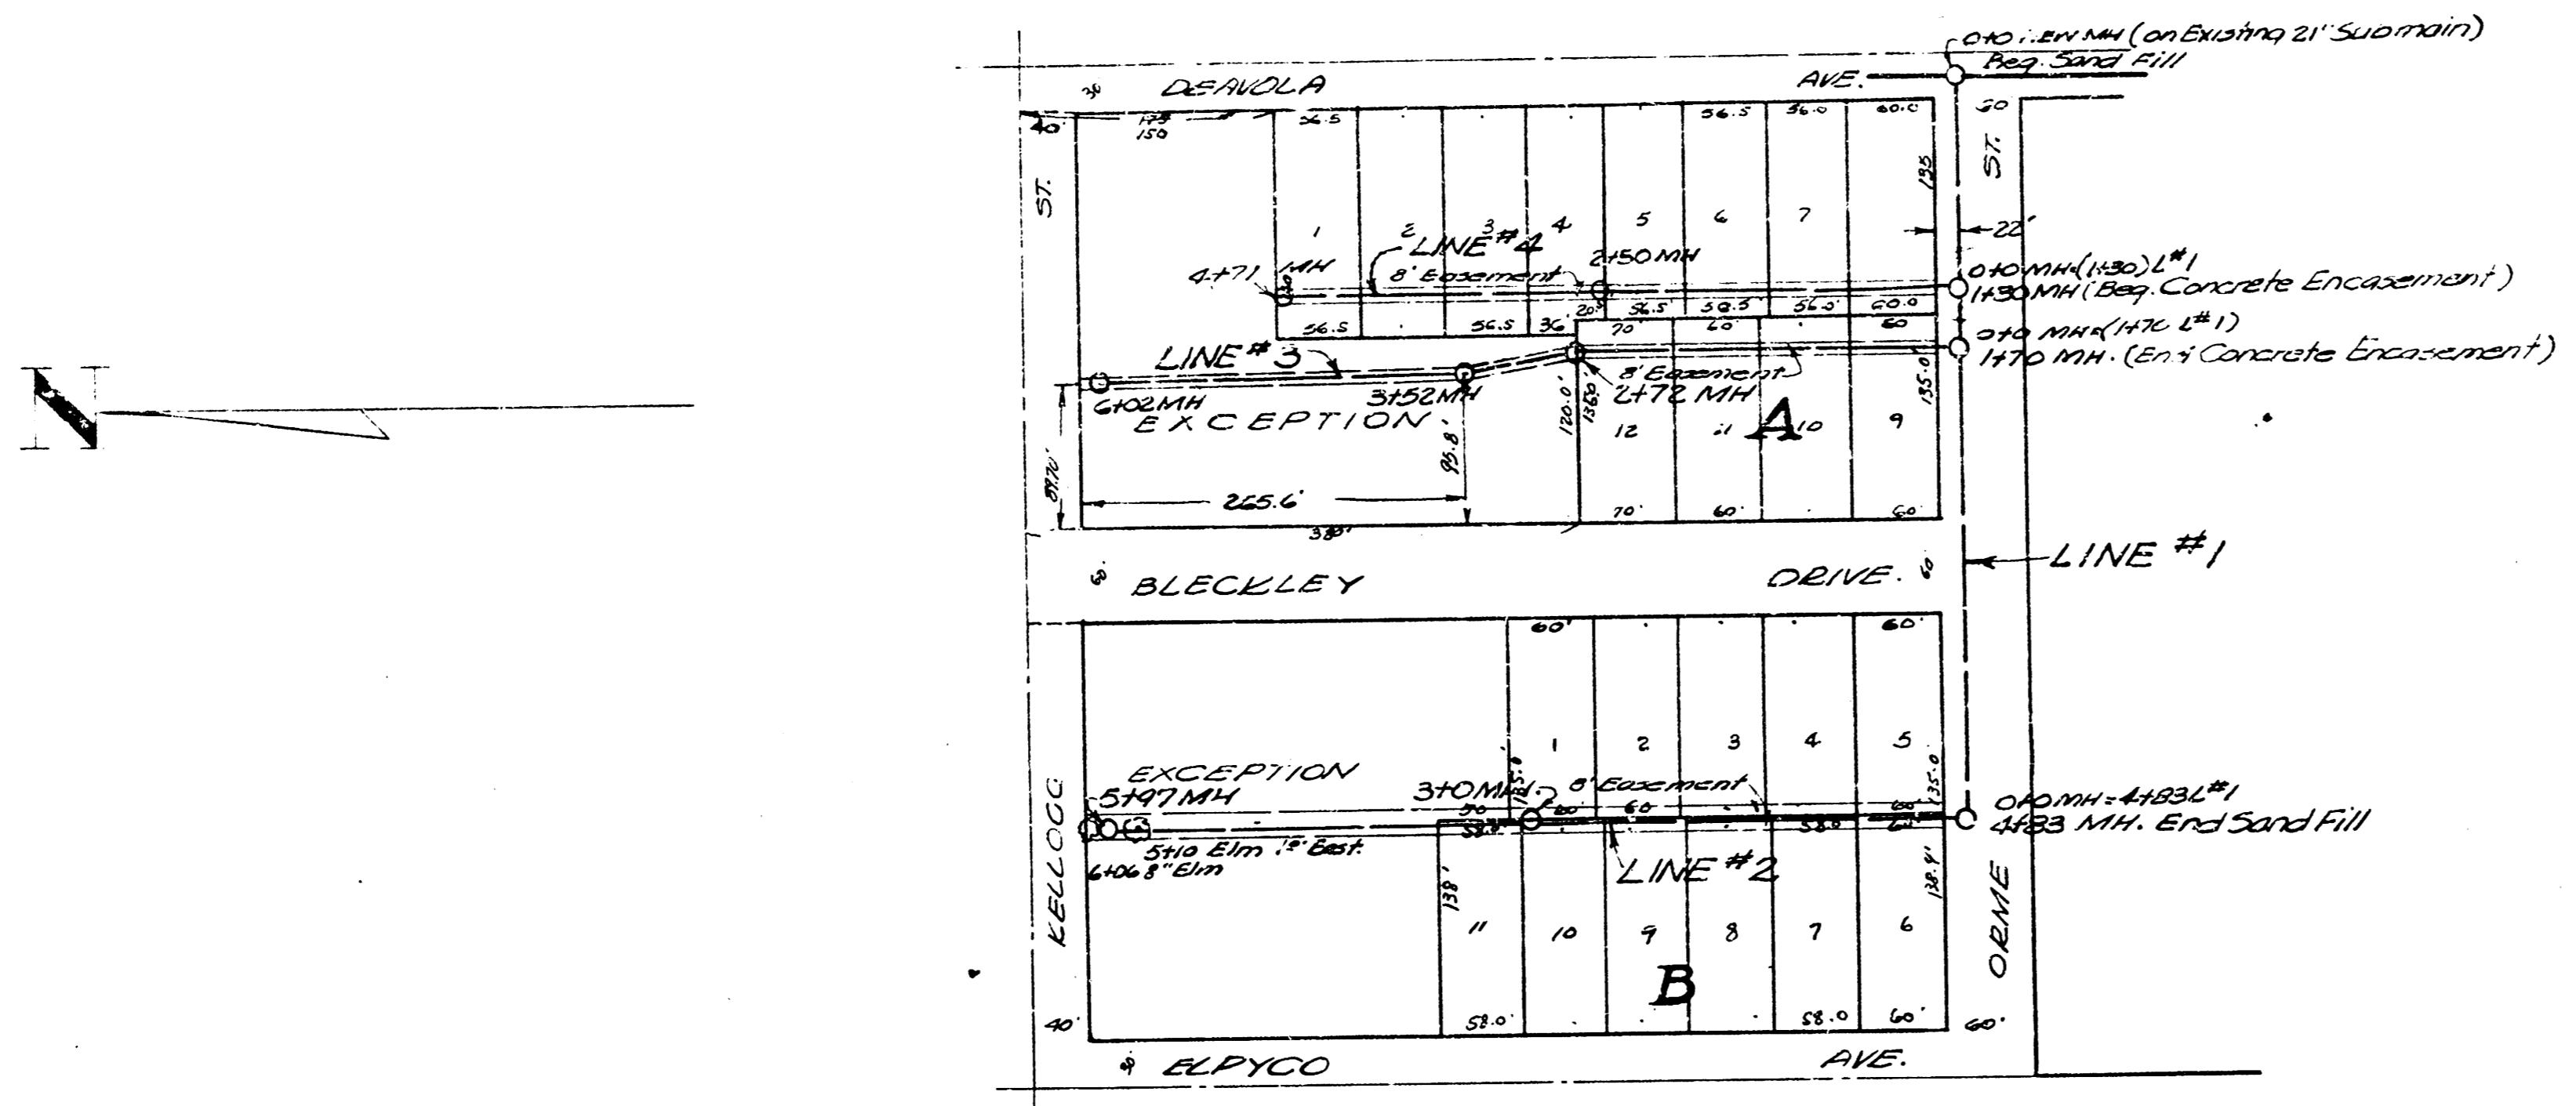 0+0 NEW MH (on Existing 21" Submain)
Beg. Sand Fill
DEAVOLA AVE.
30
40'
175
150
56.5 56.5 56.0 60.0
60
ST.
ST.
135
22'
1 2 3 4 5 6 7
LINE #4
4+71 MH
8' Easement
2+50 MH
0+0 MH=(1+30) L#1
1+30 MH (Beg. Concrete Encasement)
56.5 56.5 36' 20.5 56.5 56.5 56.0 60.0
70' 60' 60
0+0 MH=(1+70 L#1)
1+70 MH. (End Concrete Encasement)
LINE #3
8' Easement
6+02 MH
3+52 MH
2+72 MH
EXCEPTION
N
89.70'
95.8'
120.0'
136.0'
135.0'
12 11 10 9
A
265.6'
70' 60' 60'
380'
LINE #1
60'
BLECKLEY DRIVE.
60
60' 60'
1 2 3 4 5
135.0'
135.0
EXCEPTION
5+97 MH
3+0 MH.
8' Easement
50 60 60 60
58.0' 58.0 60
0+0 MH=4+83 L#1
4+83 MH. End Sand Fill
5+10 Elm East.
6+06 8" Elm
LINE #2
138'
138.4'
KELLOGG
ORME
11 10 9 8 7 6
B
40'
58.0' 58.0 60'
60'
30
ELPYCO AVE.